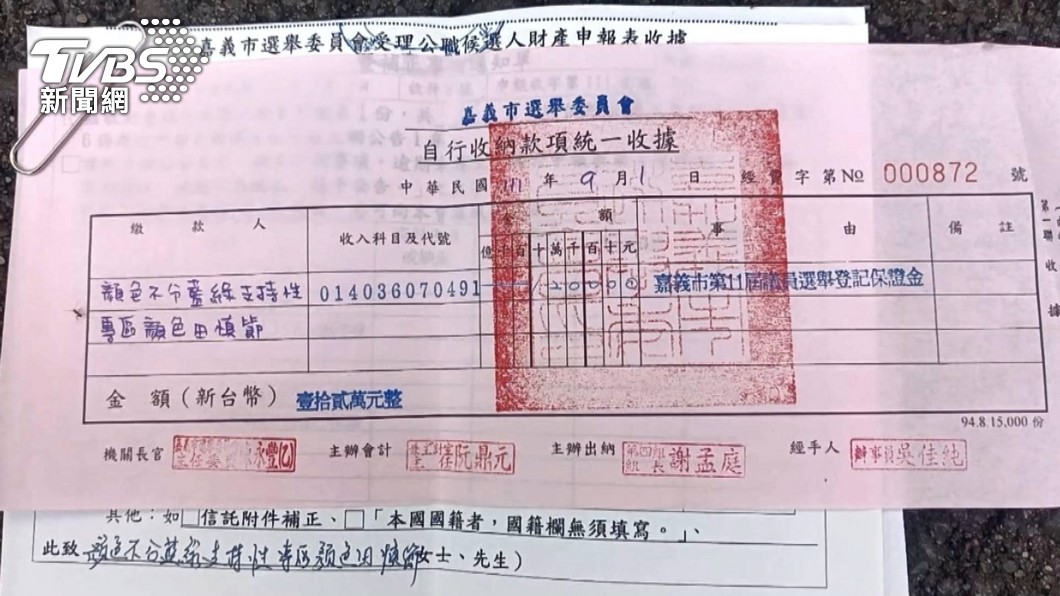 嘉義市選舉委員會受理公職候選人財產申報表收據
TVBS
新聞網
嘉義市選舉委員會
自行收納款項統一收據
中華民國 111 年 9 月 1 日 經費字第№ 000872 號
繳款人 收入科目及代號 金額 事由 備註
億千百十萬千百十元
顏色不分藍綠支持性 014036070491 120000 嘉義市第11屆議員選舉登記保證金
專區顏色田慎節
金額(新台幣) 壹拾貳萬元整
第一聯 收據
94.8.15,000 份
機關長官 主辦會計 阮鼎元 主辦出納 第四組組長謝孟庭 經手人 辦事員吳佳純
其他:如□信託附件補正、□「本國國籍者,國籍欄無須填寫。」、
此致 顏色不分藍綠支持性專區顏色田慎節 女士、先生)